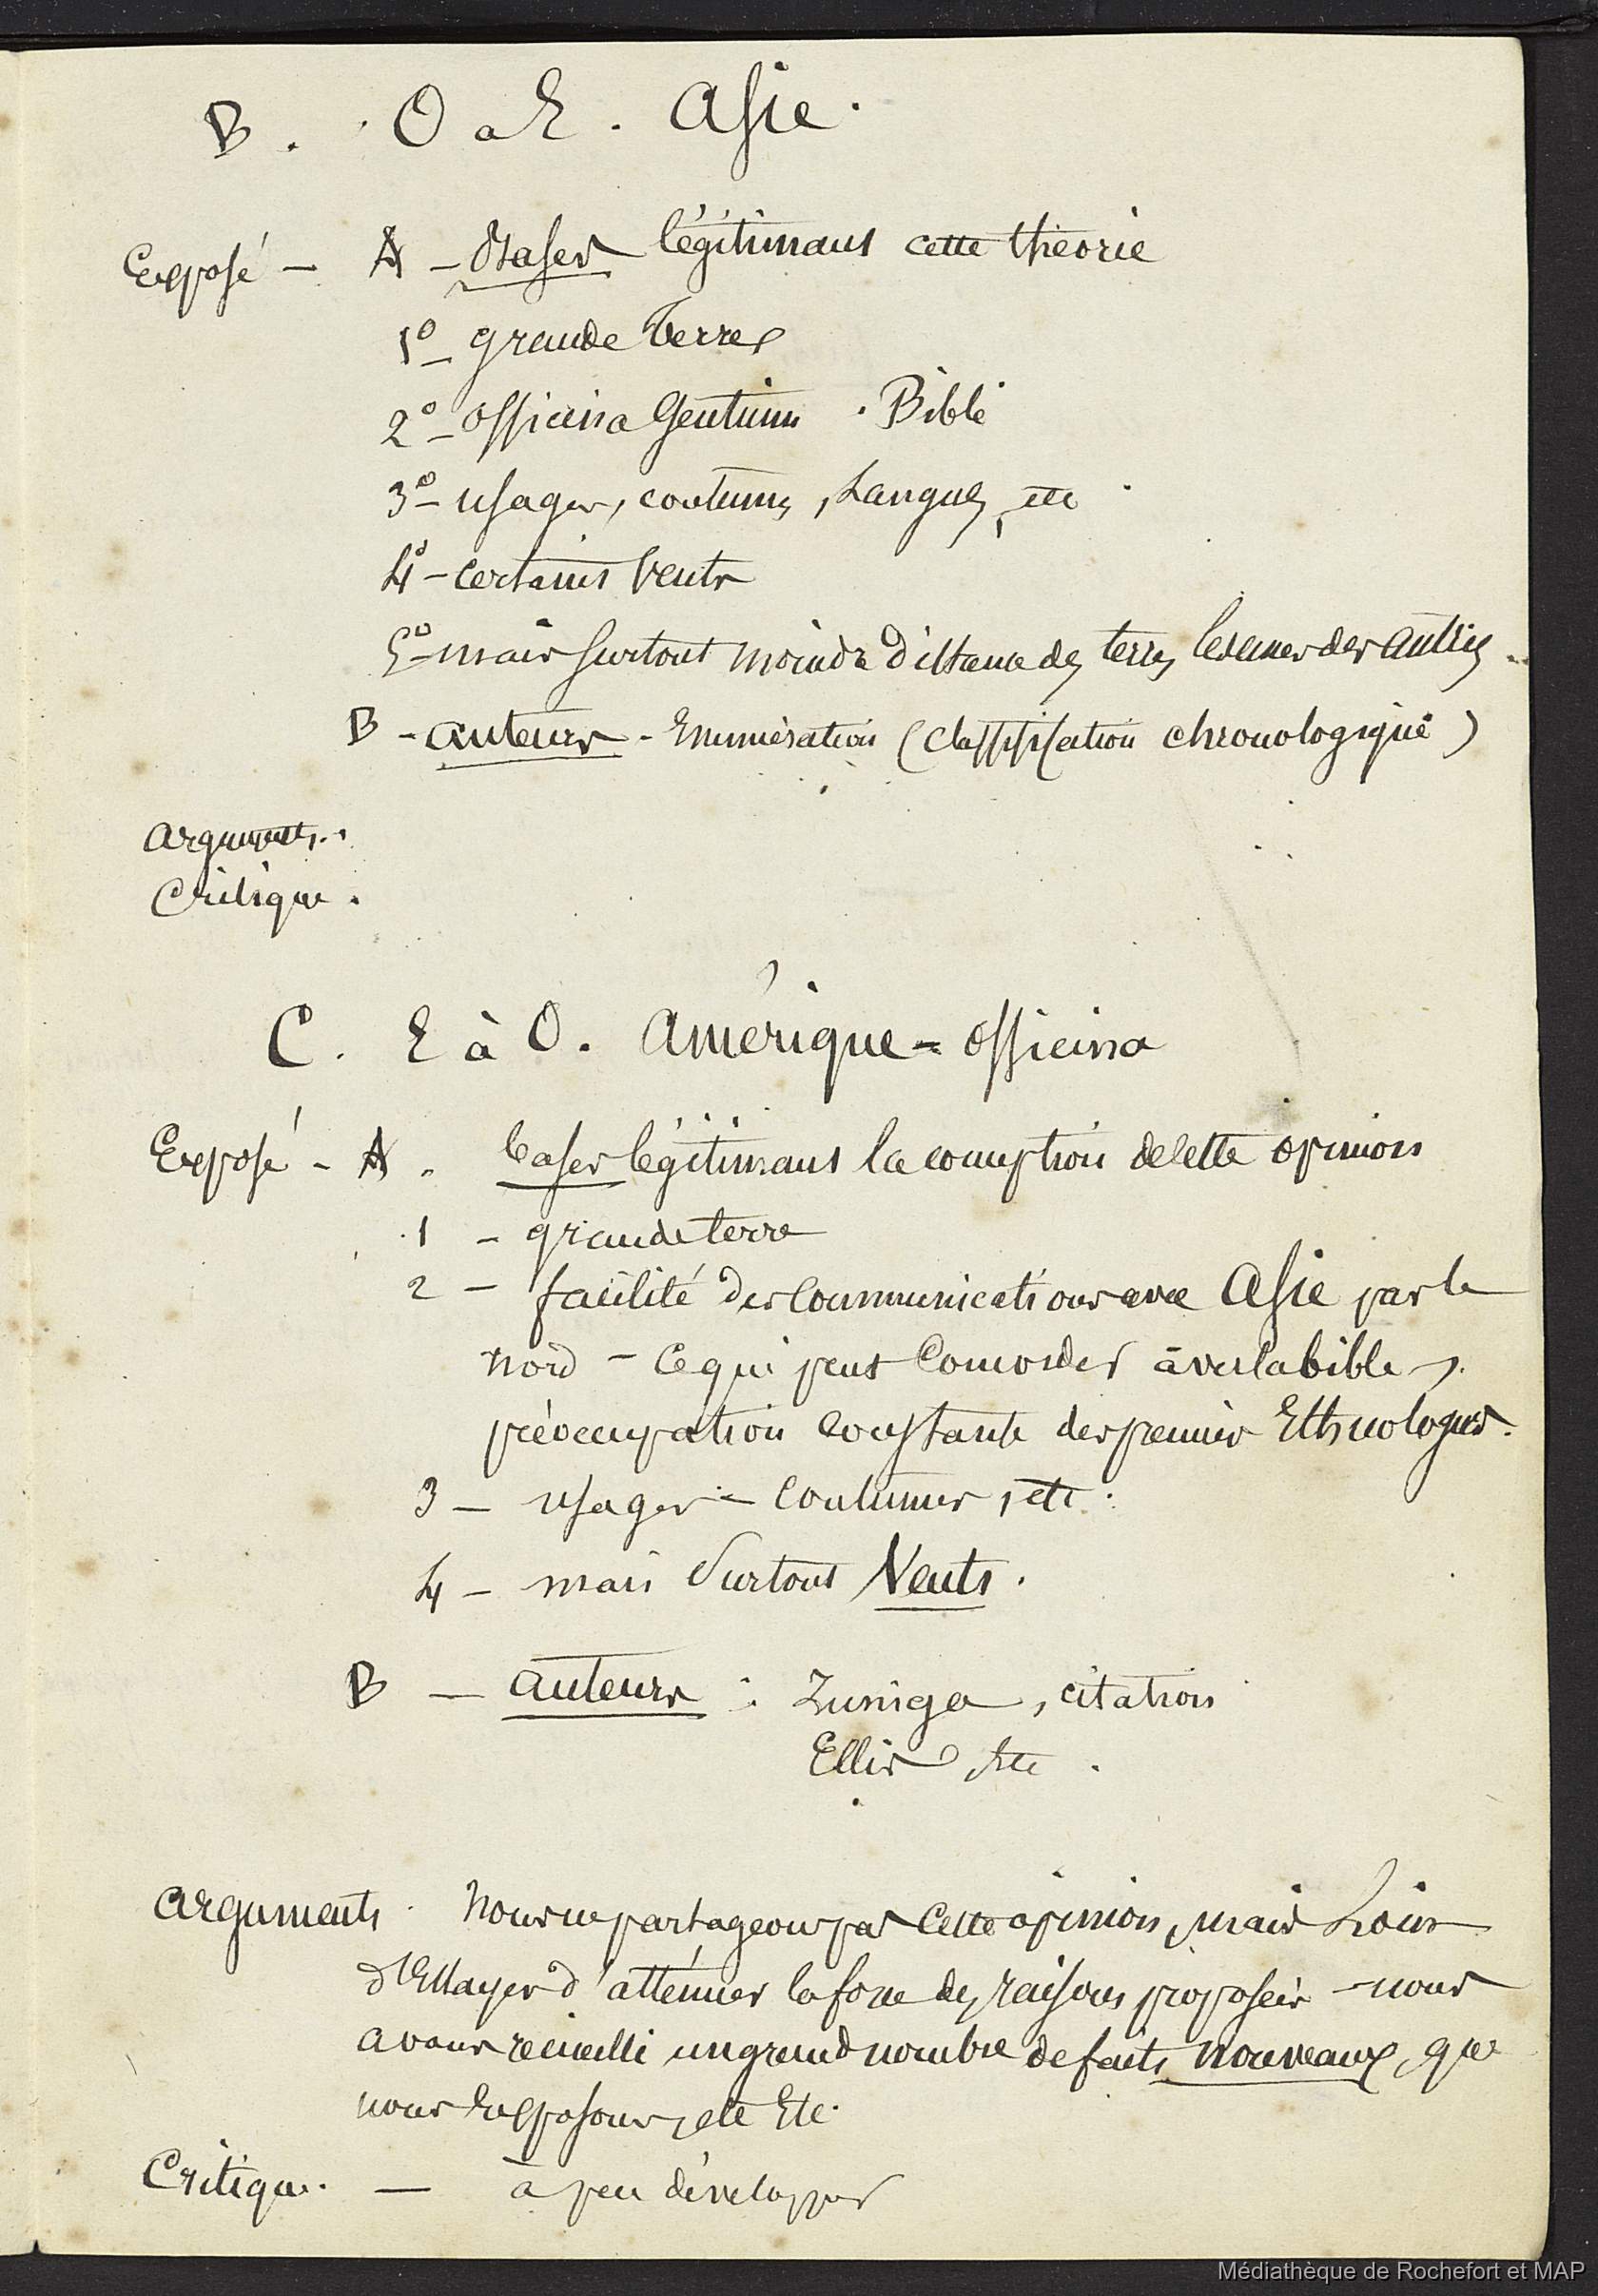 B. O à E. Asie.
Exposé — A — Bases légitimant cette théorie
1º — grande Terre
2º — officina gentium. Bible
3º — usages, coutumes, Langues, etc.
4º — certains vents
5º — mais surtout moindre distance des terres les unes des autres.
B — auteurs — Enumération (classification chronologique)
Arguments.
Critique.
C. E à O. Amérique = officina
Exposé — A. bases légitimant la conception de cette opinion
1 — grande terre
2 — facilité des communications avec Asie par le
nord — ce qui peut concorder avec la bible,
préoccupation constante des premiers Ethnologues.
3 — usages — coutumes, etc.
4 — mais surtout Vents.
B — auteurs : Zuniga, citation
Ellis, etc.
Arguments. Nous ne partageons pas cette opinion, mais Loin
d'Essayer d'atténuer la force des raisons proposées — nous
avons recueilli un grand nombre de faits nouveaux, que
nous Exposons, etc Etc.
Critique. — à peu développer
Médiathèque de Rochefort et MAP